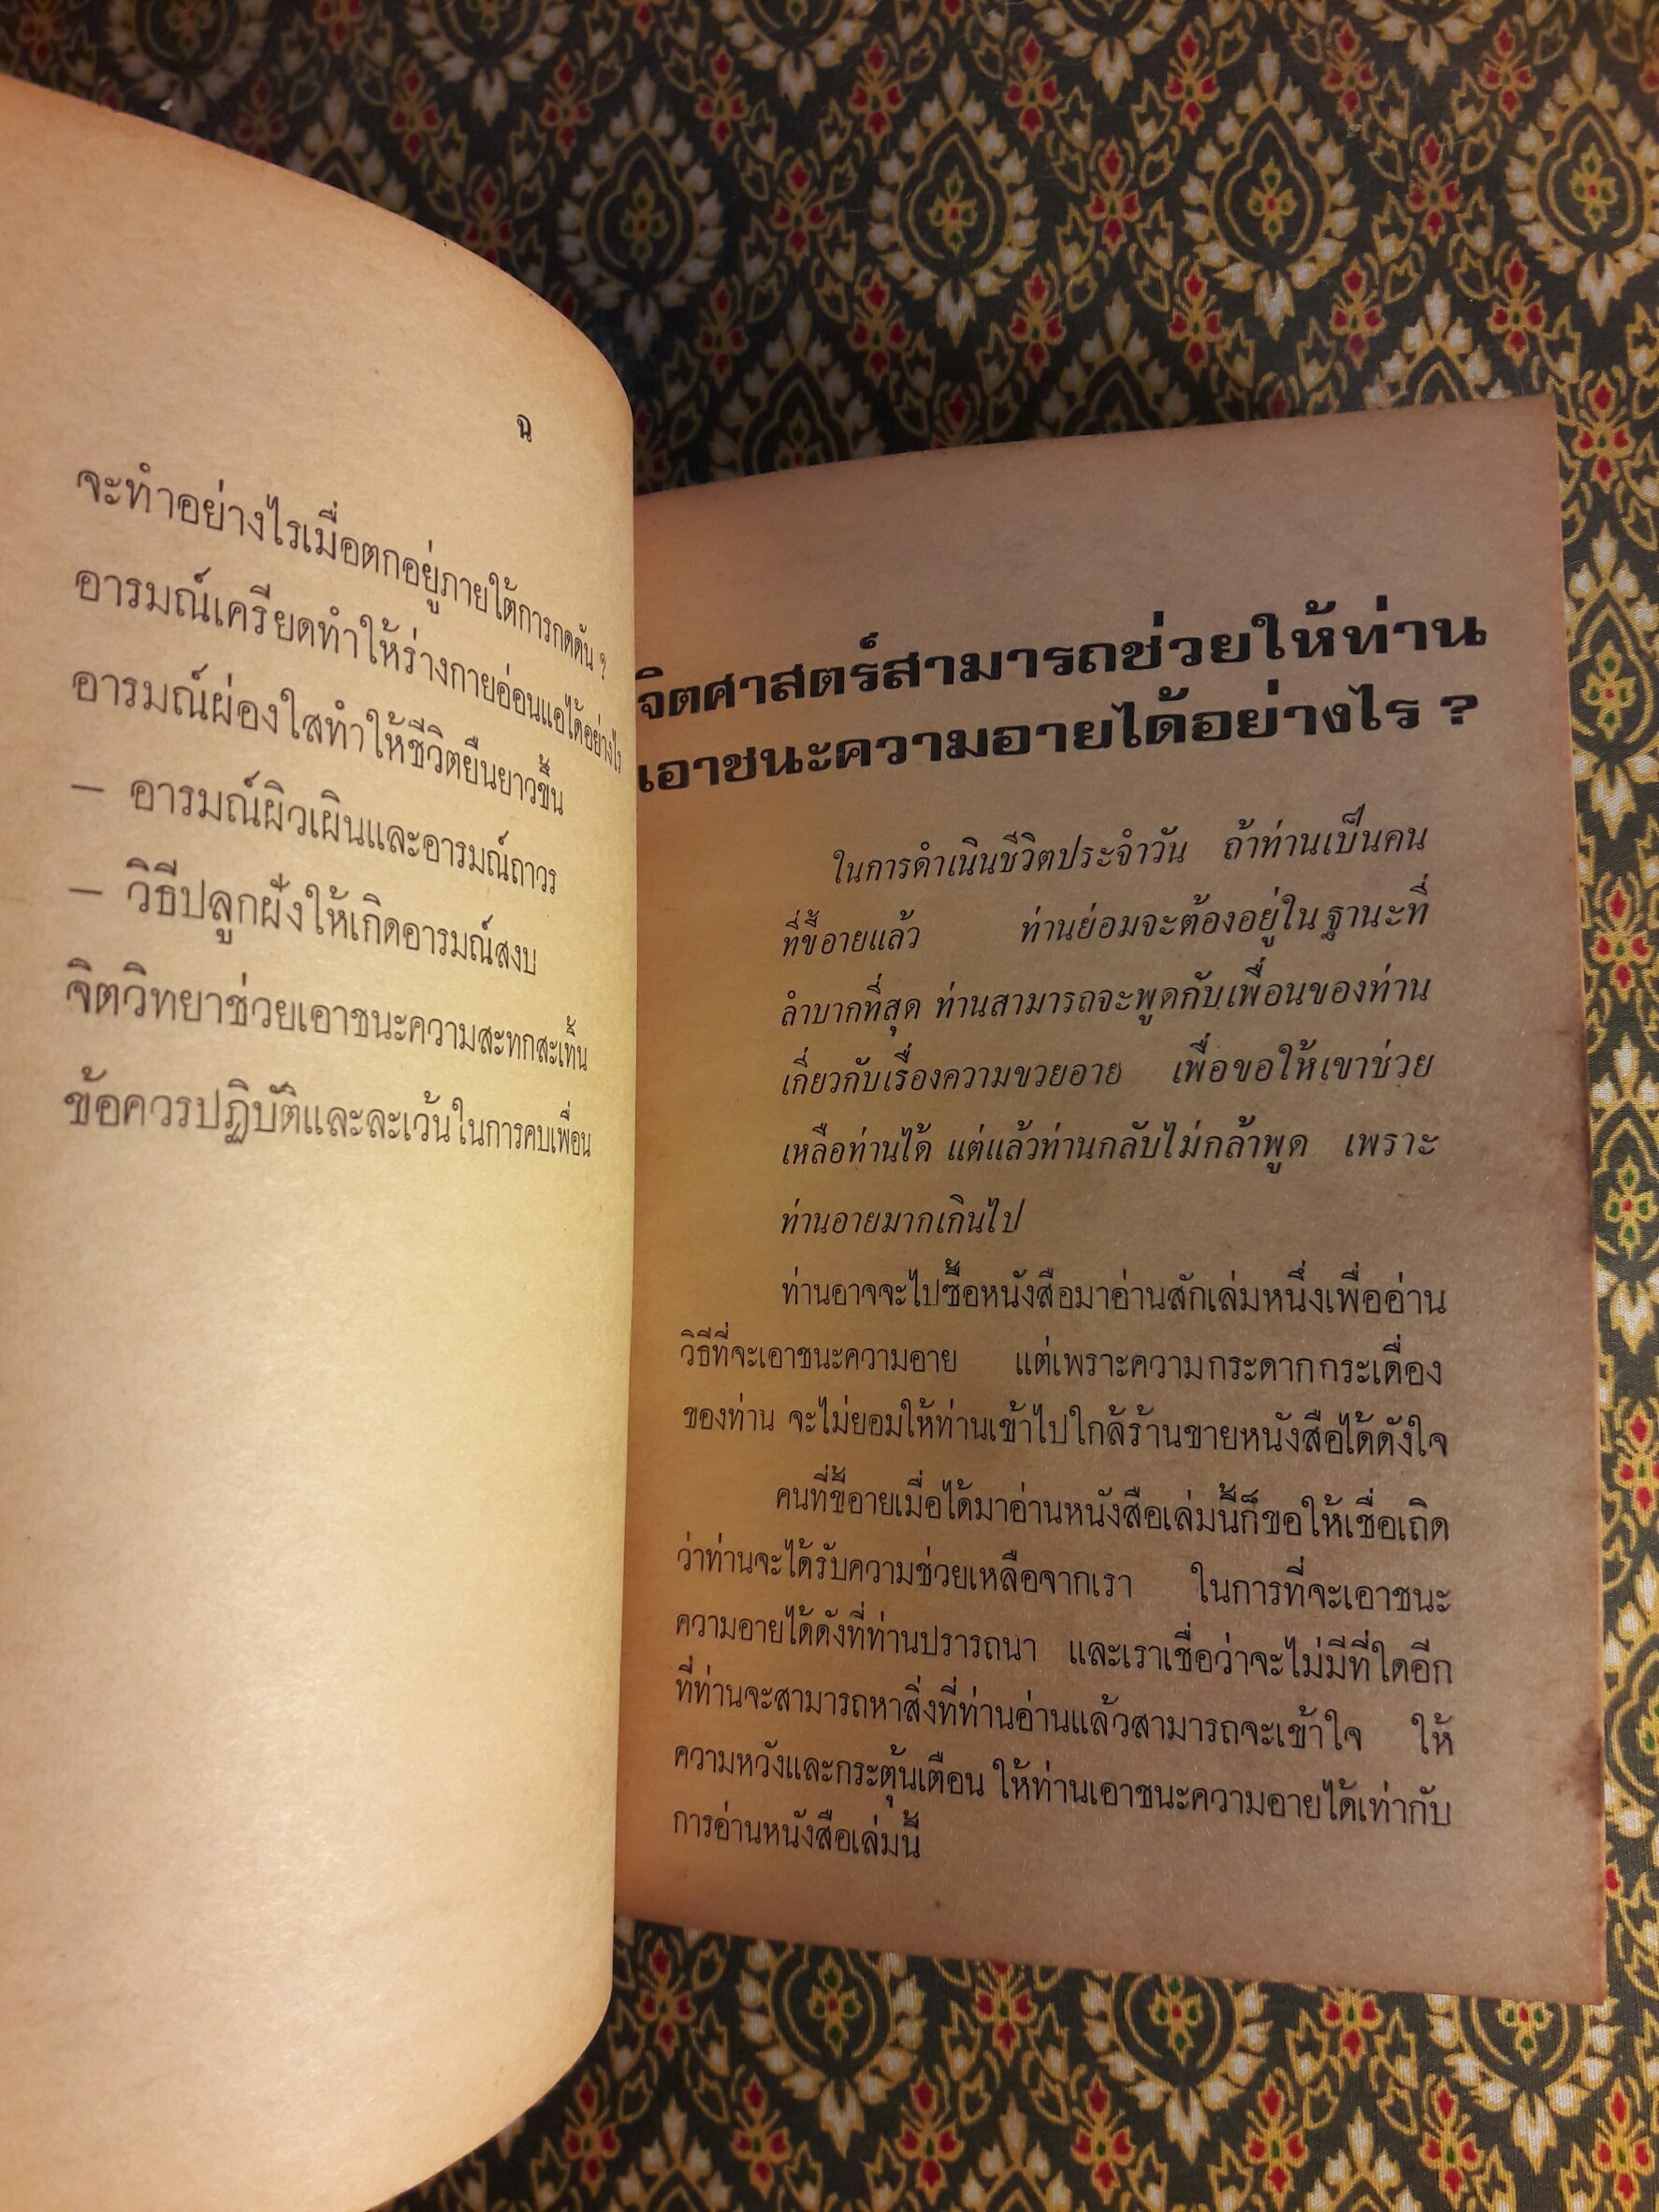 ฉ
จะทำอย่างไรเมื่อตกอยู่ภายใต้การกดดัน ?
อารมณ์เครียดทำให้ร่างกายอ่อนแอได้อย่างไร
อารมณ์ผ่องใสทำให้ชีวิตยืนยาวขึ้น
— อารมณ์ผิวเผินและอารมณ์ถาวร
— วิธีปลูกฝั่งให้เกิดอารมณ์สงบ
จิตวิทยาช่วยเอาชนะความสะทกสะเทิ้น
ข้อควรปฏิบัติและละเว้นในการคบเพื่อน
จิตศาสตร์สามารถช่วยให้ท่าน
เอาชนะความอายได้อย่างไร ?
ในการดำเนินชีวิตประจำวัน ถ้าท่านเป็นคน
ที่ขี้อายแล้ว ท่านย่อมจะต้องอยู่ในฐานะที่
ลำบากที่สุด ท่านสามารถจะพูดกับเพื่อนของท่าน
เกี่ยวกับเรื่องความขวยอาย เพื่อขอให้เขาช่วย
เหลือท่านได้ แต่แล้วท่านกลับไม่กล้าพูด เพราะ
ท่านอายมากเกินไป
ท่านอาจจะไปซื้อหนังสือมาอ่านสักเล่มหนึ่งเพื่ออ่าน
วิธีที่จะเอาชนะความอาย แต่เพราะความกระดากกระเดื่อง
ของท่าน จะไม่ยอมให้ท่านเข้าไปใกล้ร้านขายหนังสือได้ดังใจ
คนที่ขี้อายเมื่อได้มาอ่านหนังสือเล่มนี้ก็ขอให้เชื่อเถิด
ว่าท่านจะได้รับความช่วยเหลือจากเรา ในการที่จะเอาชนะ
ความอายได้ดังที่ท่านปรารถนา และเราเชื่อว่าจะไม่มีที่ใดอีก
ที่ท่านจะสามารถหาสิ่งที่ท่านอ่านแล้วสามารถจะเข้าใจ ให้
ความหวังและกระตุ้นเตือน ให้ท่านเอาชนะความอายได้เท่ากับ
การอ่านหนังสือเล่มนี้